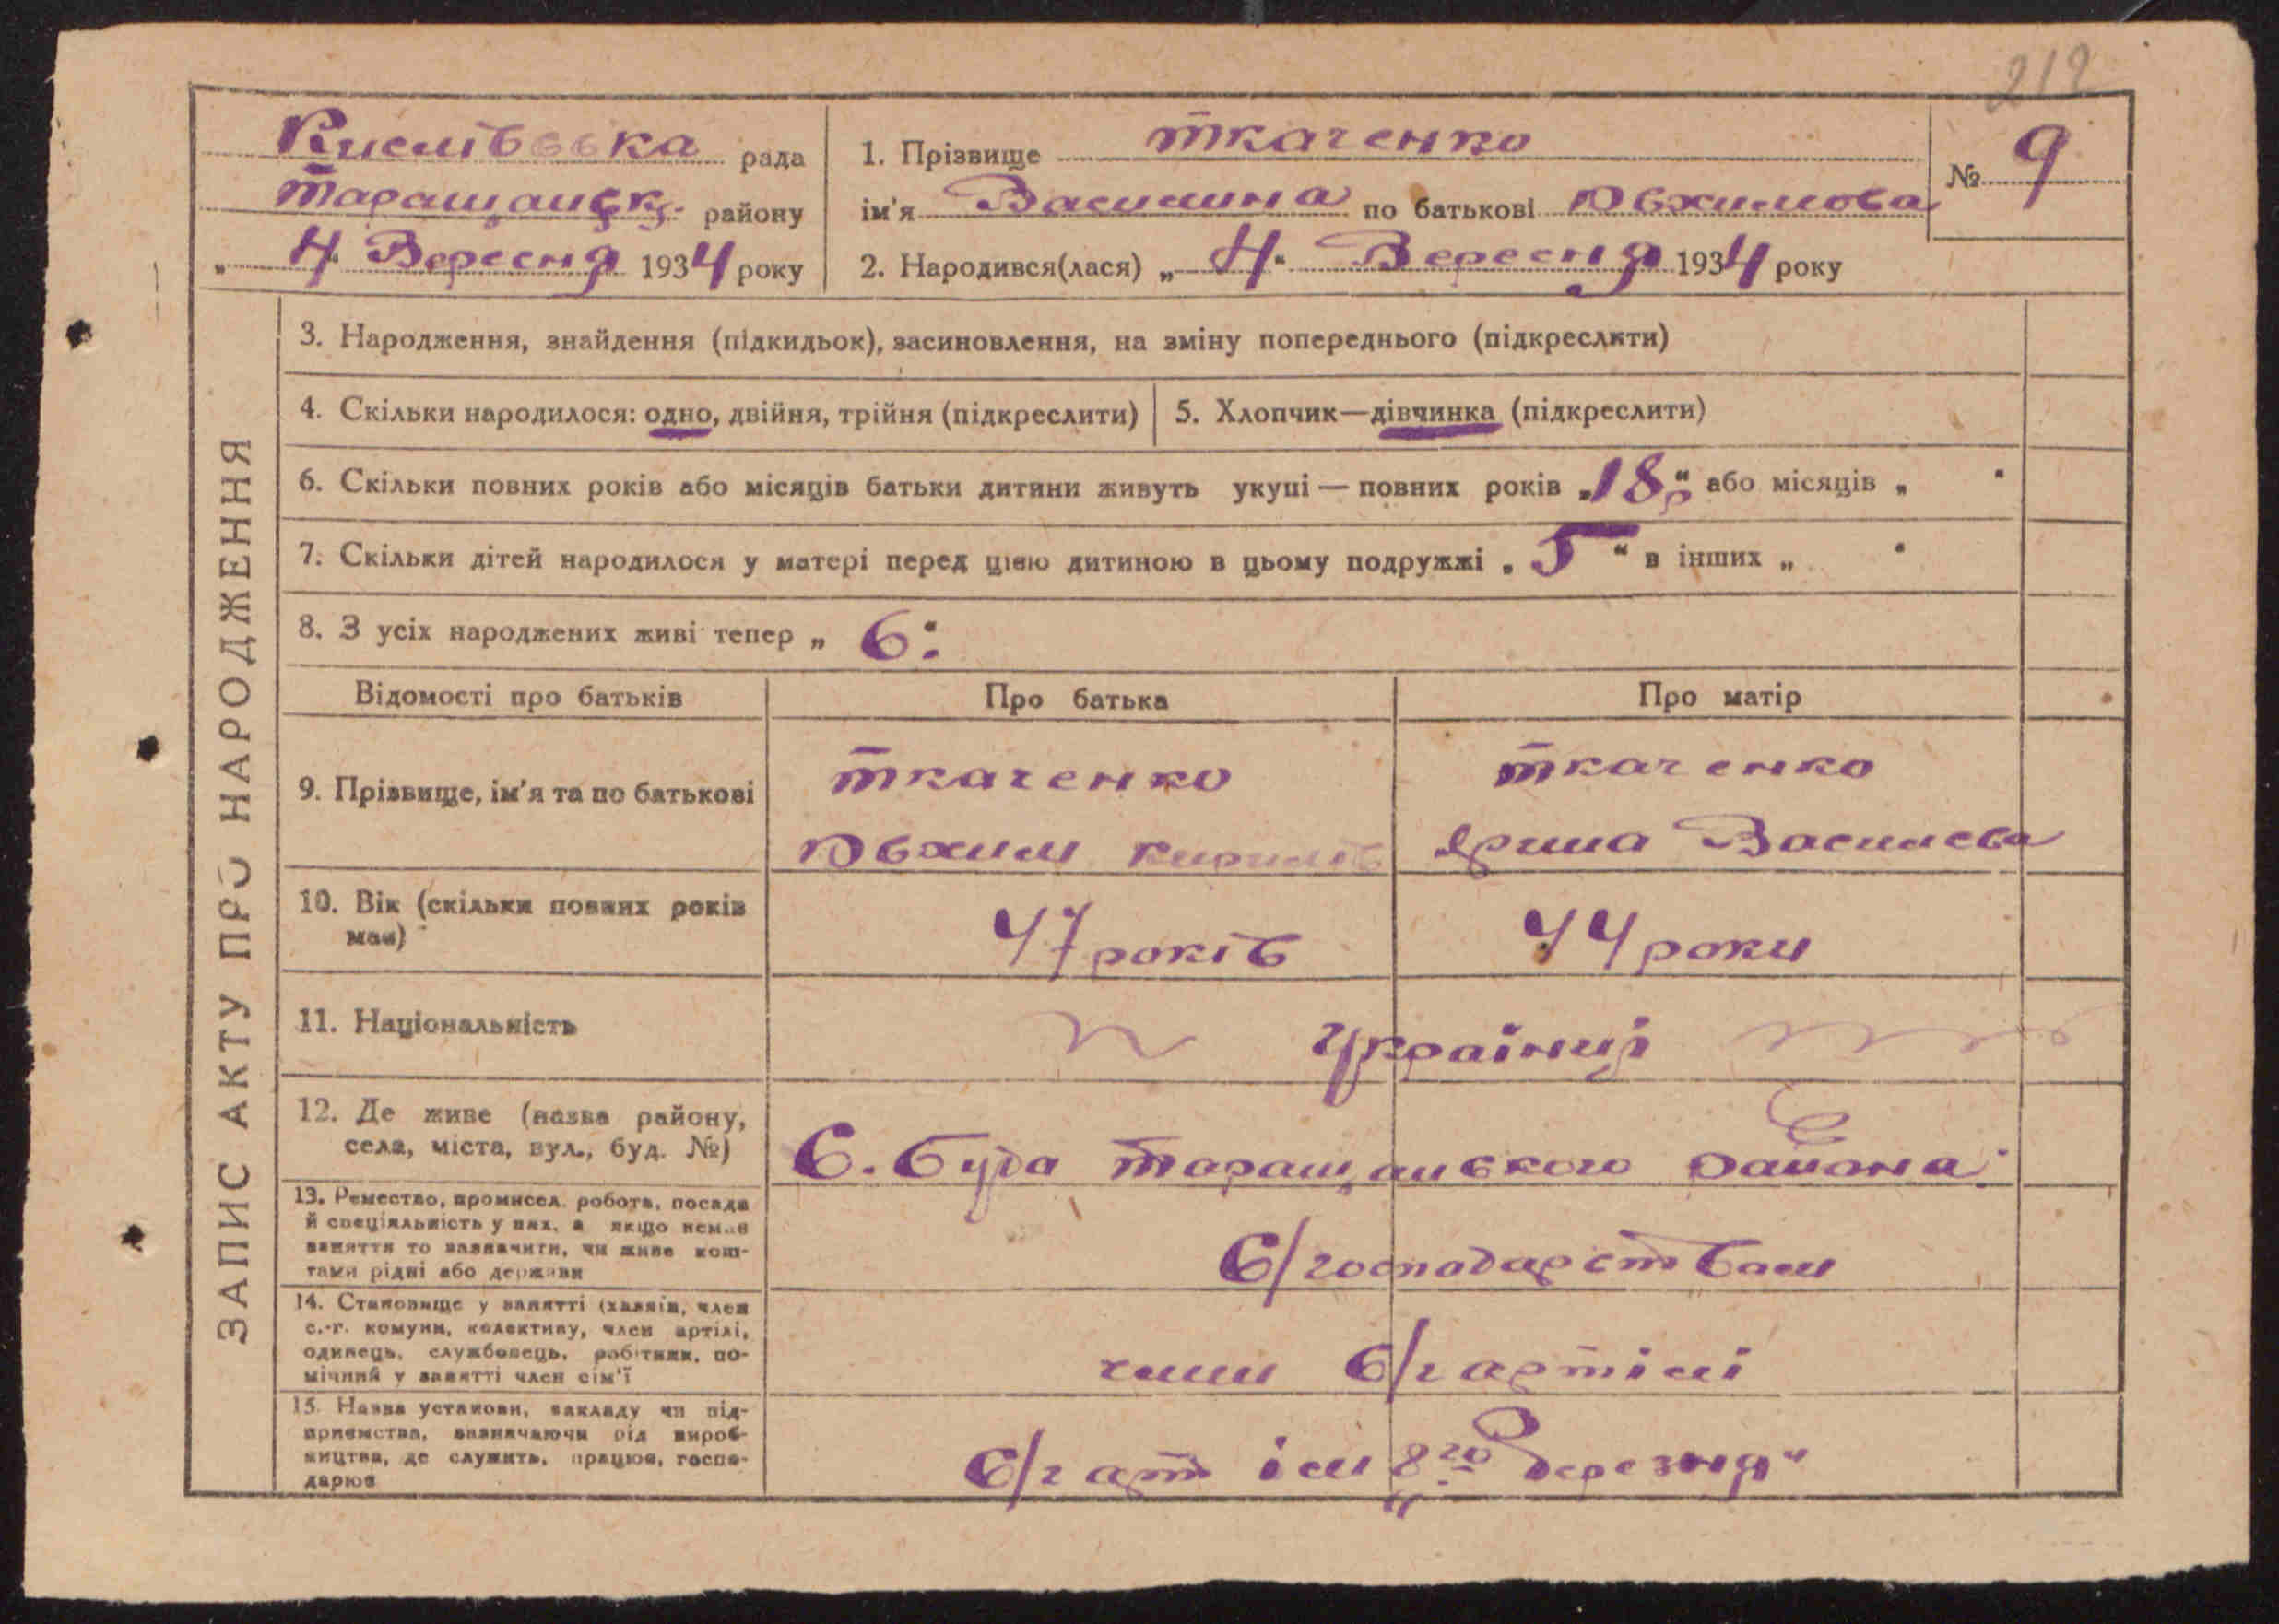 212
Кислівська рада
Таращанськ. району
„ 4 " Вересня 1934 року
1. Прізвище Ткаченко
ім'я Василина по батьковіЮвхимова
2. Народився(лася) „ 4 " Вересня 1934 року
№ 9
ЗАПИС АКТУ ПРО НАРОДЖЕННЯ
3. Народження, знайдення (підкидьок), засиновлення, на зміну попереднього (підкреслити)
4. Скільки народилося: одно, двійня, трійня (підкреслити)
5. Хлопчик—дівчинка (підкреслити)
6. Скільки повних років або місяців батьки дитини живуть укупі — повних років „18 р" або місяців „ "
7. Скільки дітей народилося у матері перед цією дитиною в цьому подружжі „ 5 " в інших „ "
8. З усіх народжених живі тепер „ 6 "
Відомості про батьків
Про батька
Про матір
9. Прізвище, ім'я та по батькові
Ткаченко
Ювхим Кирилів
Ткаченко
Ярина Василева
10. Вік (скільки повних років
має)
47 років
44 роки
11. Національність
Українці
12. Де живе (назва району,
села, міста, вул., буд. №)
С. Буда Таращанского района
13. Ремество, промисел. робота, посада
й спеціяльність у них, а якщо немає
заняття то зазначити, чи живе кош-
тами рідні або держави
С/господарством
14. Становище у занятті (хазяїн, член
с.-г. комуни, колективу, член артілі,
одинець, службовець, робітник, по-
мічний у занятті член сім'ї
член С/г артілі
15. Назва установи, закладу чи під-
приємства, зазначаючи рід вироб-
ництва, де служить, працює, госпо-
дарює
С/г арт ім „8го Березня"